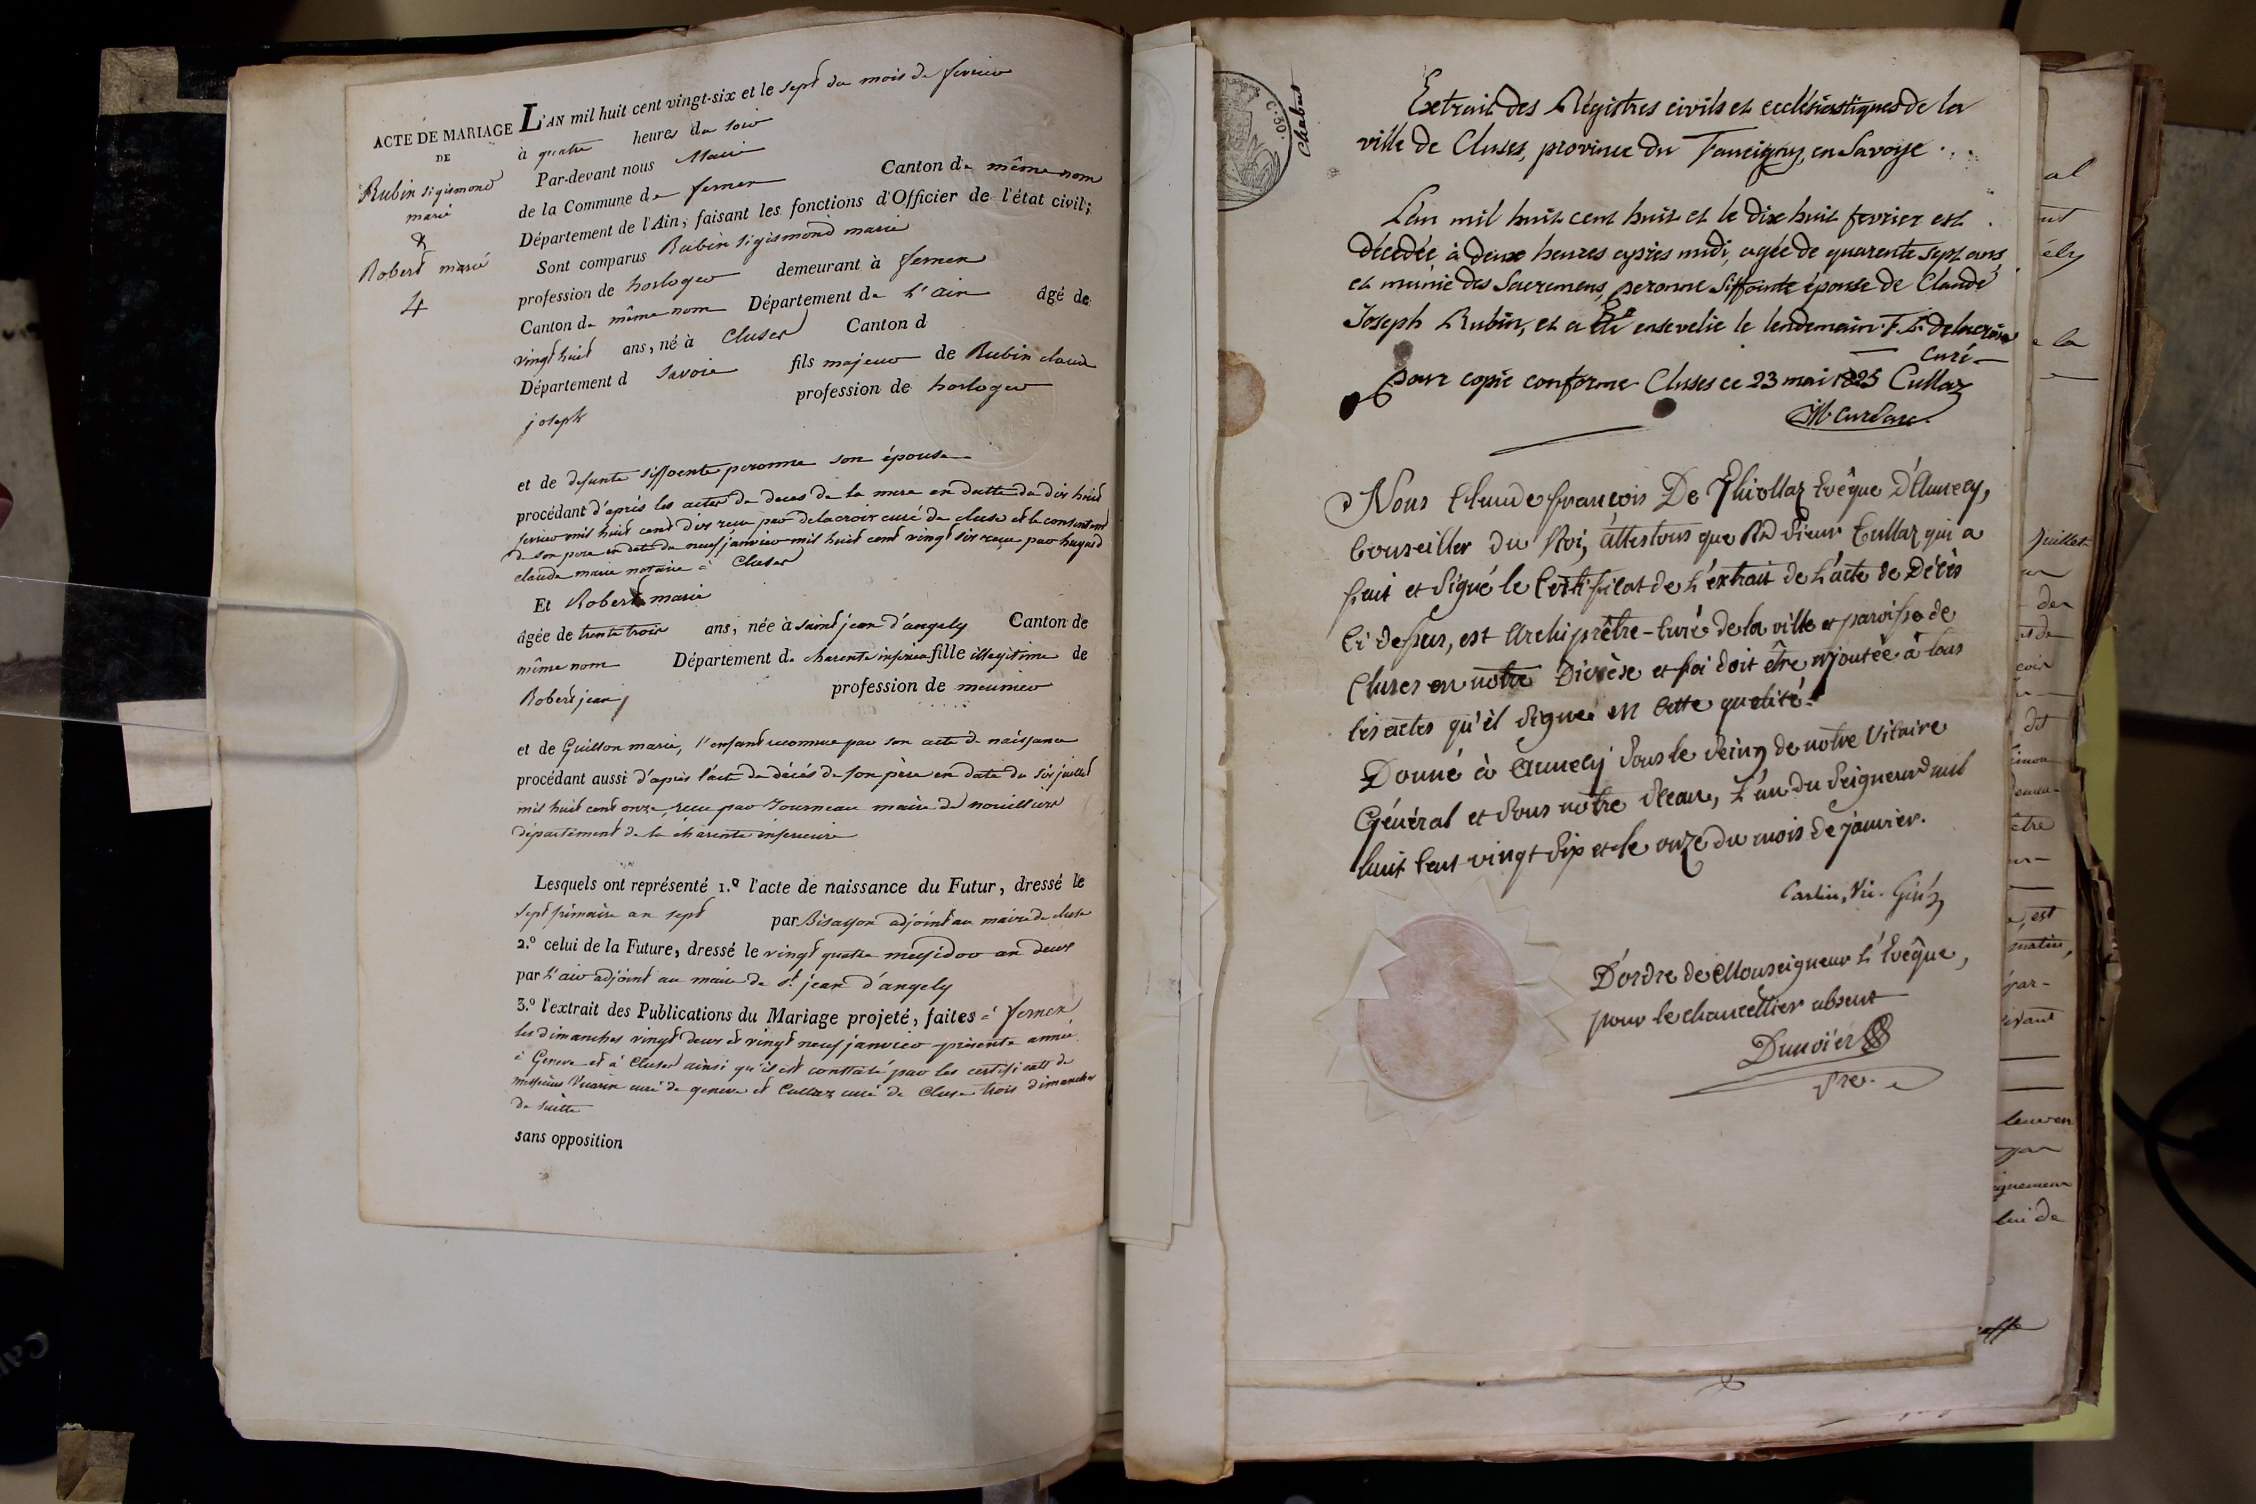 ACTE DE MARIAGE
DE
Rubin sigismond
marie
&
Robert marie
4
L'AN mil huit cent vingt-six et le sept du mois de fevrier
à quatre heures du soir
Par-devant nous Maire
de la Commune de fernex Canton de même nom
Département de l'Ain, faisant les fonctions d'Officier de l'état civil;
Sont comparus Rubin sigismond marie
profession de horloger demeurant à fernex
Canton de même nom Département de l'ain âgé de
vingt huit ans, né à Cluses Canton d
Département d Savoie fils majeur de Rubin claude
joseph profession de horloger
et de defunte siffointe peronne son épouse
procédant d'après les actes de deces de la mere en datte du dix huit
fevrier mil huit cent dix recu par delacroix curé de cluse et le consentement
de son pere en date du neuf janvier mil huit cent vingt six reçu par
claude marie notaire à Cluses
Et Robert marie
âgée de trente trois ans, née à saint jean d'angely Canton de
même nom Département de charente inferieure fille illegitime de
Robert jean profession de meunier
et de Guillon marie, l'enfant reconnue par son acte de naissance
procédant aussi d'après l'acte de décés de son père en date du six juillet
mil huit cent onze, recu par Journeau maire de
département de la charente inferieure
Lesquels ont représenté 1.º l'acte de naissance du Futur, dressé le
sept frimaire an sept par adjoint au maire de cluse
2.º celui de la Future, dressé le vingt quatre messidor an deux
par adjoint au maire de st jean d'angely
3.º l'extrait des Publications du Mariage projeté, faites à fernex
les dimanches vingt deux et vingt neuf janvier présente année
à Geneve et à Cluses ainsi qu'il est constaté par les certificats de
messieurs Vuarin curé de geneve et Cullaz curé de Cluse trois dimanches
de suitte
sans opposition
C. 50.
Chabert
Extrait des Régistres civils et ecclésiastiques de la
ville de Cluses, province du Faucigny, en Savoye.
L'an mil huit cent huit et le dix huit fevrier est
décédée à deux heures après midi, agée de quarente sept ans
et munie des Sacremens, peronne Siffointe épouse de Claude
Joseph Rubin, et a été ensevelie le lendemain. delacroix
curé
pour copie conforme Cluses ce 23 mai 1825 Cullaz
Nous Claude François De Thiollaz Evêque d'Annecy,
Conseiller du Roi, attestons que Rd Sieur Cullaz qui a
fait et signé le Certificat de l'extrait de l'acte de Décès
ci dessus, est Archiprêtre-Curé de la ville et paroisse de
Cluses en notre Diocèse et foi doit être ajoutée à tous
les actes qu'il signe en cette qualité.
Donné à Annecy sous le seing de notre Vicaire
Général et sous notre sceau, L'an du Seigneur mil
huit cent vingt six et le onze du mois de janvier.
Vic. Gén.
D'ordre de Monseigneur L'Evêque,
pour le chancellier absent
juillet
la
de
dit
être
est
matin,
par-